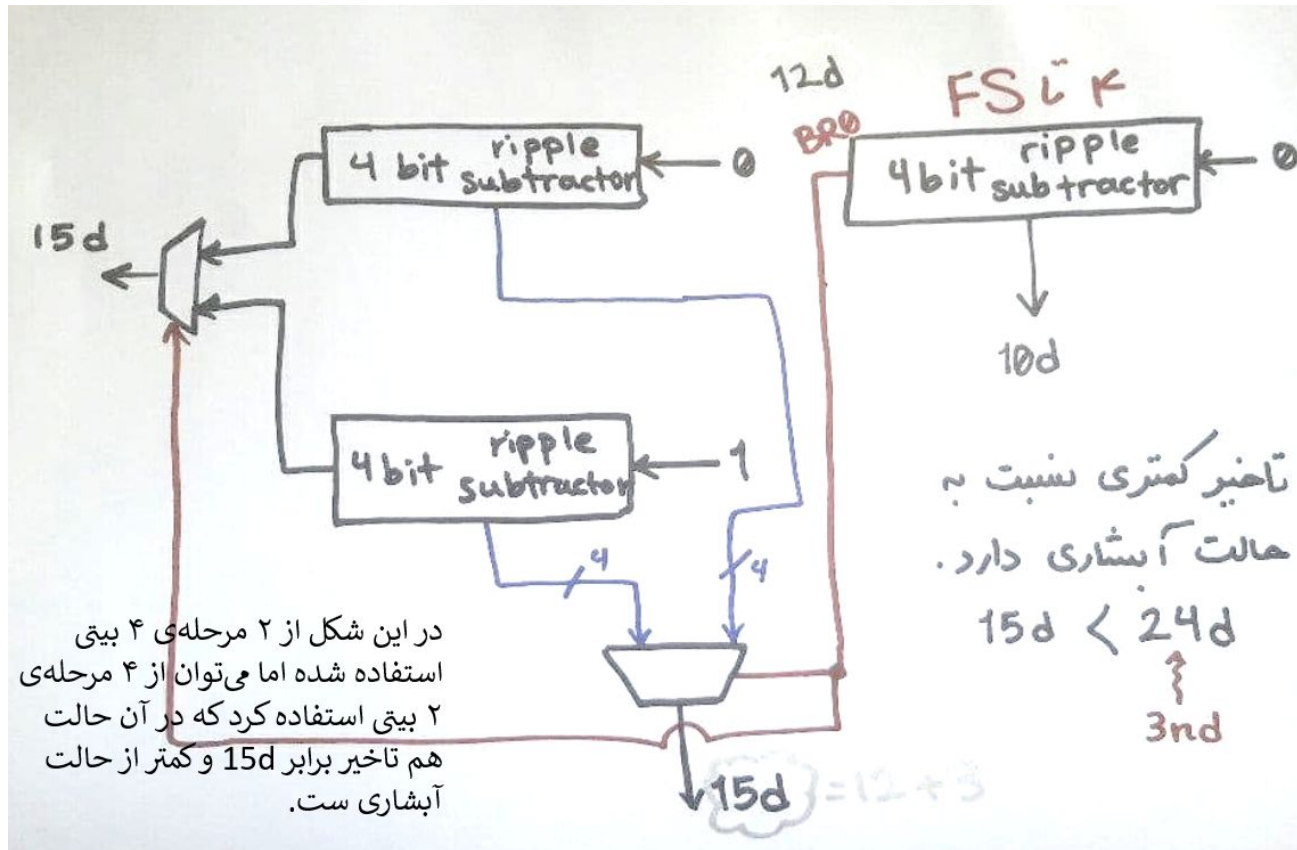 12d
FS تا ۴
BRO
4 bit ripple subtractor
0
4 bit ripple subtractor
0
15d
10d
4 bit ripple subtractor
1
4
4
تاخیر کمتری نسبت به
حالت آبشاری دارد.
15d < 24d
3nd
15d = 12 + 3
در این شکل از ۲ مرحله‌ی ۴ بیتی
استفاده شده اما می‌توان از ۴ مرحله‌ی
۲ بیتی استفاده کرد که در آن حالت
هم تاخیر برابر 15d و کمتر از حالت
آبشاری ست.